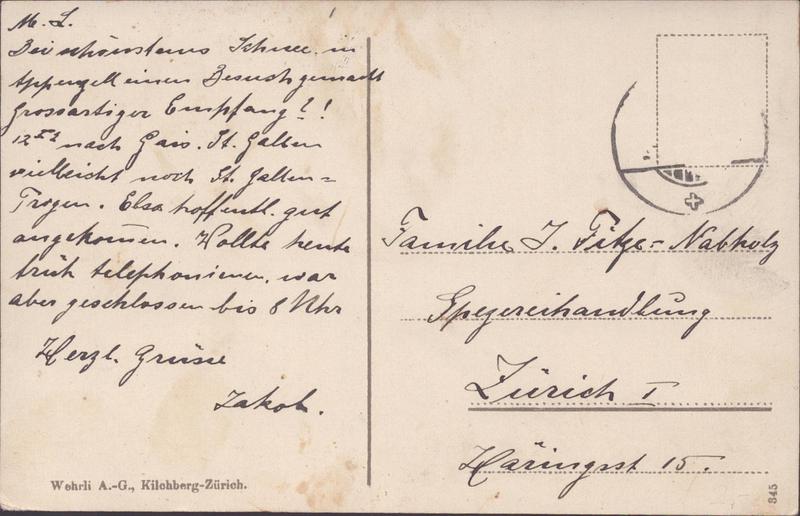 M. L.
Bei schönstems Schnee in
Appenzell einen Besuch gemacht
Grossartiger Empfang!!
nach Gais. St. Gallen
vielleicht noch St. Gallen-
Trogen. Elsa hoffentl. gut
angekommen. Wollte heute
früh telephonieren, war
aber geschlossen bis 8 Uhr
Herzl. Grüsse
Jakob.
Wehrli A.-G., Kilchberg-Zürich.
Familie J. Fitze-Nabholz
Spezereihandlung
Zürich I
Häringsst 15.
345